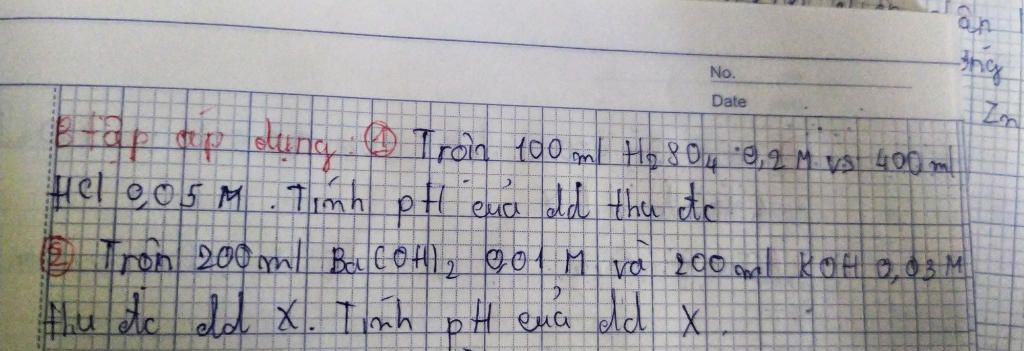 ân
No.
ứng
Date
Zn
B tập áp dụng: ① Trộn 100 ml H₂SO₄ 0,2 M vs 400 ml
HCl 0,05 M. Tính pH của dd thu đc
② Trộn 200 ml Ba(OH)₂ 0,01 M và 200 ml KOH 0,03 M
thu đc dd X. Tính pH của dd X.